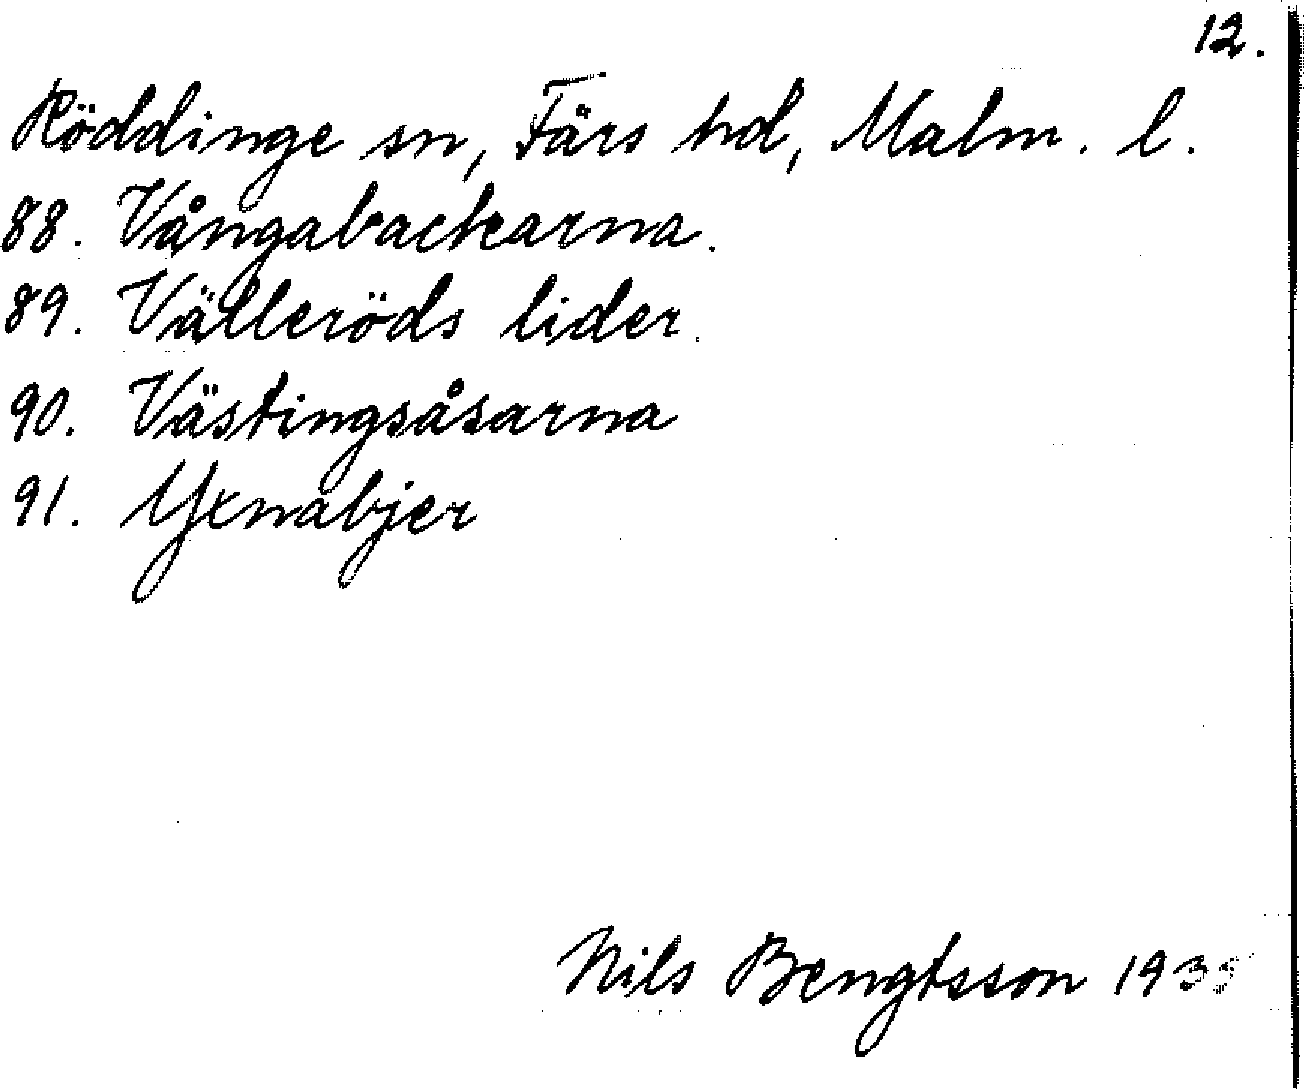 12.
Röddinge sn, Färs hd, Malm. l.
88. Vångabackarna.
89. Välleröds lider.
90. Västingsåsarna
91. Yxnabjer
Nils Bengtsson 1935